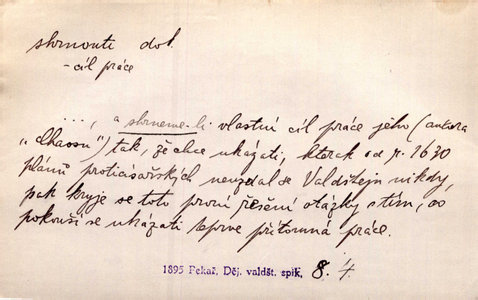 shrnouti dok.
-cíl práce
..., a shrneme-li vlastní cíl práce jeho (autora
„ ") tak, že chce ukázati, kterak od r. 1630
plánů proticísařských nevzdal se Valdštejn nikdy,
pak kryje se toto první řešení otázky s tím, co
pokouší se ukázati teprve přítomná práce.
1895 Pekař, Děj. valdšt. spik, 8. 4